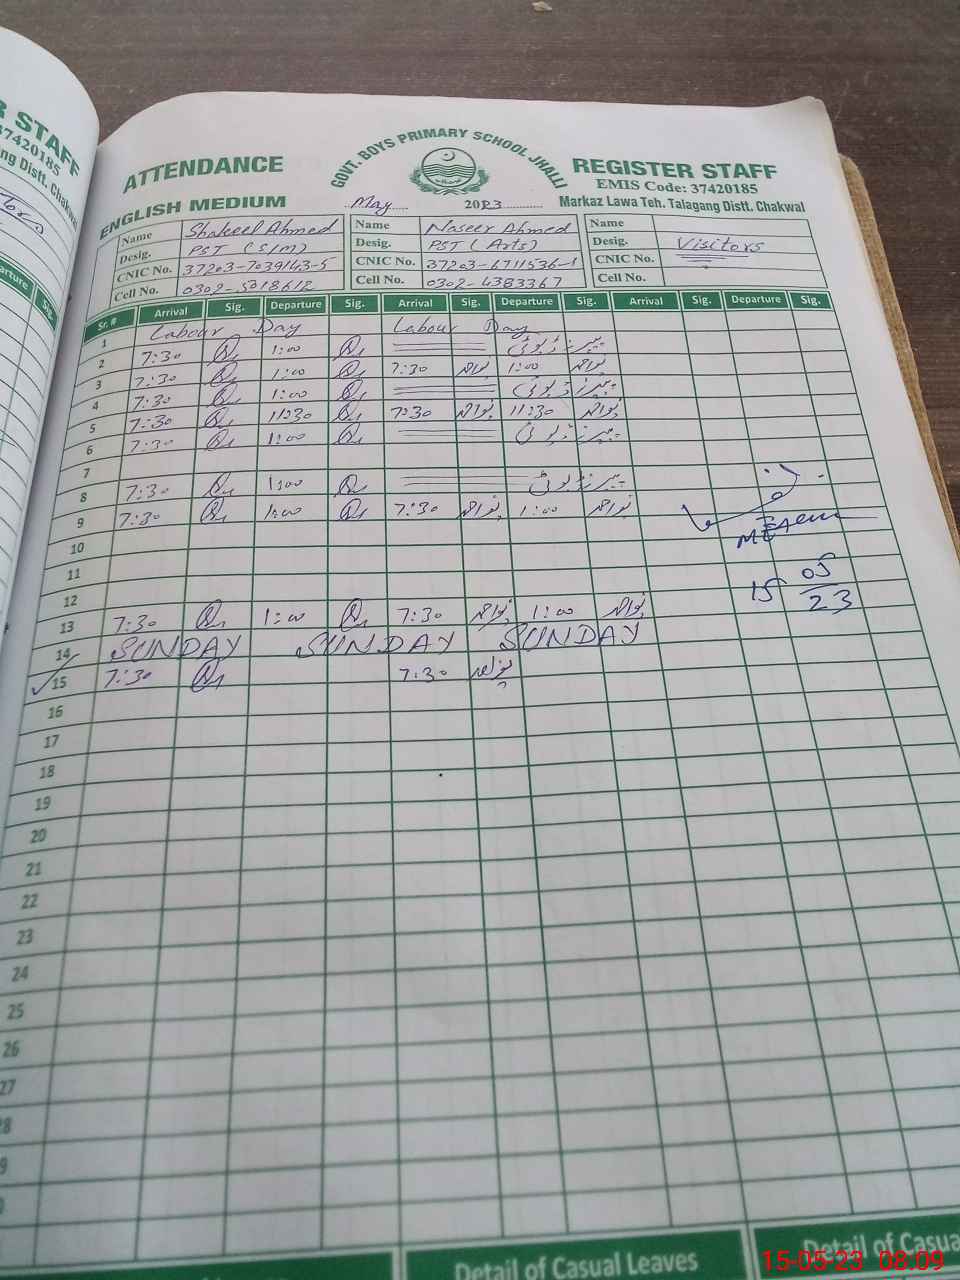 R STAFF
37420185
ng Distt. Chakwal
arture Sig.
GOVT. BOYS PRIMARY SCHOOL JHALLI
ATTENDANCE REGISTER STAFF
EMIS Code: 37420185
ENGLISH MEDIUM May 2023 Markaz Lawa Teh. Talagang Distt. Chakwal
Name Shakeel Ahmed Name Naseer Ahmed Name
Desig. PST (S/M) Desig. PST (Arts) Desig. Visitors
CNIC No. 37203-7039143-5 CNIC No. 37203-6711536-1 CNIC No.
Cell No. 0302-5018612 Cell No. 0302-4383367 Cell No.
Sr. # Arrival Sig. Departure Sig. Arrival Sig. Departure Sig. Arrival Sig. Departure Sig.
1 Labour Day Labour Day
2 7:30 1:00 پیپرز ڈیوٹی
3 7:30 1:00 7:30 1:00
4 7:30 1:00 پیپرز ڈیوٹی
5 7:30 11:30 7:30 11:30
6 7:30 1:00 پیپرز ڈیوٹی
7
8 7:30 1:00 پیپرز ڈیوٹی
9 7:30 1:00 7:30 1:00
10
11
12
13 7:30 1:00 7:30 1:00
14 SUNDAY SUNDAY SUNDAY
15 7:30 7:30
15 05
23
16
17
18
19
20
21
22
23
24
25
26
27
28
9
Detail of Casual Leaves Detail of Casua
15-05-23 08:09